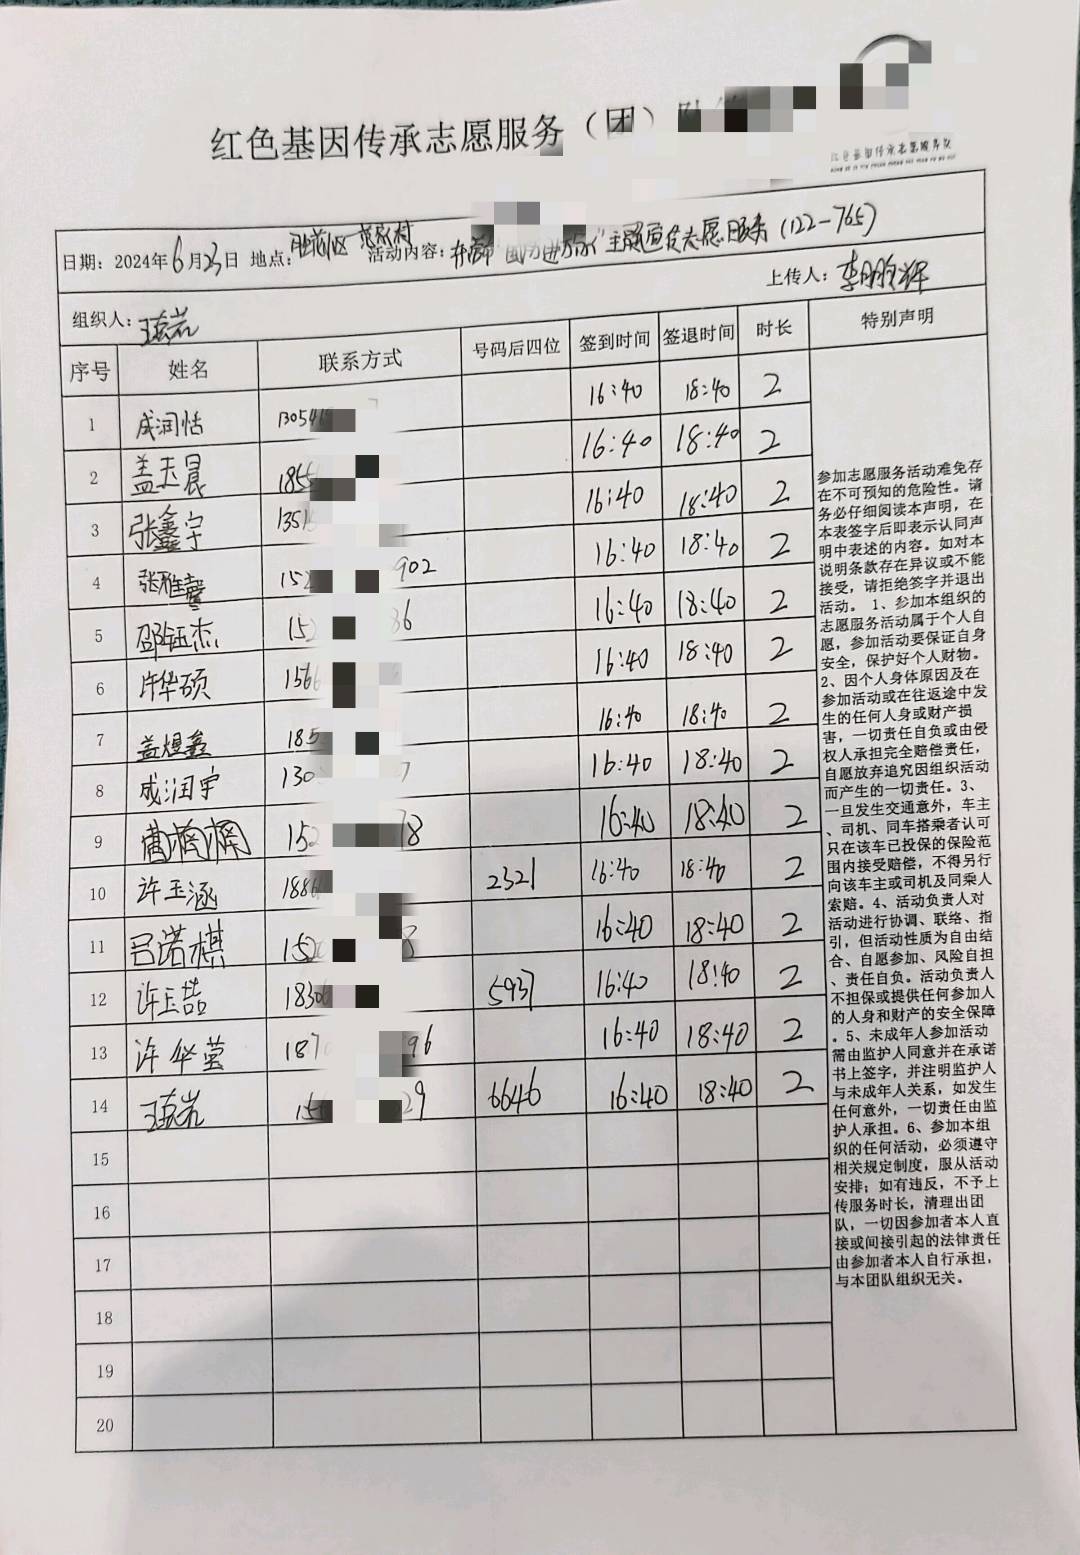 红色基因传承志愿服务（团）
红色基因传承志愿服务队
日期：2024年6月23日 地点： 活动内容： 主题宣传志愿服务（122-765）
组织人： 上传人：
序号 姓名 联系方式 号码后四位 签到时间 签退时间 时长 特别声明
1 成润恬 130541 16:40 18:40 2
2 盖玉晨 185 16:40 18:40 2
3 张鑫宇 1351 16:40 18:40 2
4 张雅馨 152 902 16:40 18:40 2
5 邵钰杰 152 36 16:40 18:40 2
6 许华硕 1566 16:40 18:40 2
7 盖煜鑫 185 16:40 18:40 2
8 成润宇 130 7 16:40 18:40 2
9 152 78 16:40 18:40 2
10 许玉涵 1886 2321 16:40 18:40 2
11 吕诺棋 1520 8 16:40 18:40 2
12 许玉喆 18306 5937 16:40 18:40 2
13 许华莹 187 96 16:40 18:40 2
14 150 29 6646 16:40 18:40 2
15
16
17
18
19
20
参加志愿服务活动难免存
在不可预知的危险性。请
务必仔细阅读本声明，在
本表签字后即表示认同声
明中表述的内容。如对本
说明条款存在异议或不能
接受，请拒绝签字并退出
活动。 1、参加本组织的
志愿服务活动属于个人自
愿，参加活动要保证自身
安全，保护好个人财物。
2、因个人身体原因及在
参加活动或在往返途中发
生的任何人身或财产损
害，一切责任自负或由侵
权人承担完全赔偿责任，
自愿放弃追究因组织活动
而产生的一切责任。3、
一旦发生交通意外，车主
、司机、同车搭乘者认可
只在该车已投保的保险范
围内接受赔偿，不得另行
向该车主或司机及同乘人
索赔。4、活动负责人对
活动进行协调、联络、指
引，但活动性质为自由结
合、自愿参加、风险自担
、责任自负。活动负责人
不担保或提供任何参加人
的人身和财产的安全保障
。5、未成年人参加活动
需由监护人同意并在承诺
书上签字，并注明监护人
与未成年人关系，如发生
任何意外，一切责任由监
护人承担。6、参加本组
织的任何活动，必须遵守
相关规定制度，服从活动
安排；如有违反，不予上
传服务时长，清理出团
队，一切因参加者本人直
接或间接引起的法律责任
由参加者本人自行承担，
与本团队组织无关。